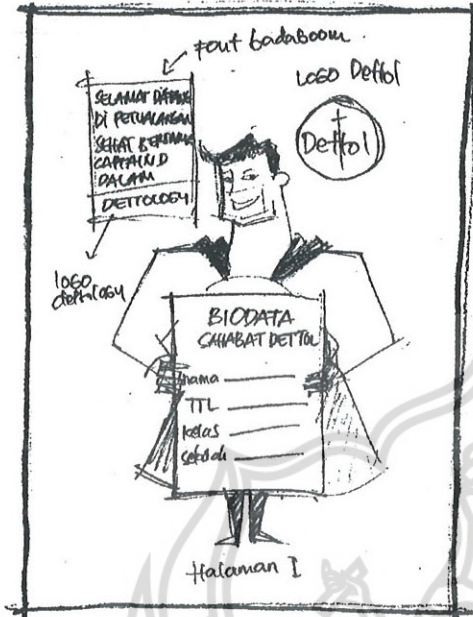 Font badaboom
Logo Dettol
SELAMAT DATANG
DI PETUALANGAN
SEHAT BERSAMA
CAPTAIN D
DALAM
DETTOLOGY
Dettol
logo
dettology
BIODATA
SAHABAT DETTOL
nama
TTL
kelas
sekolah
Halaman I